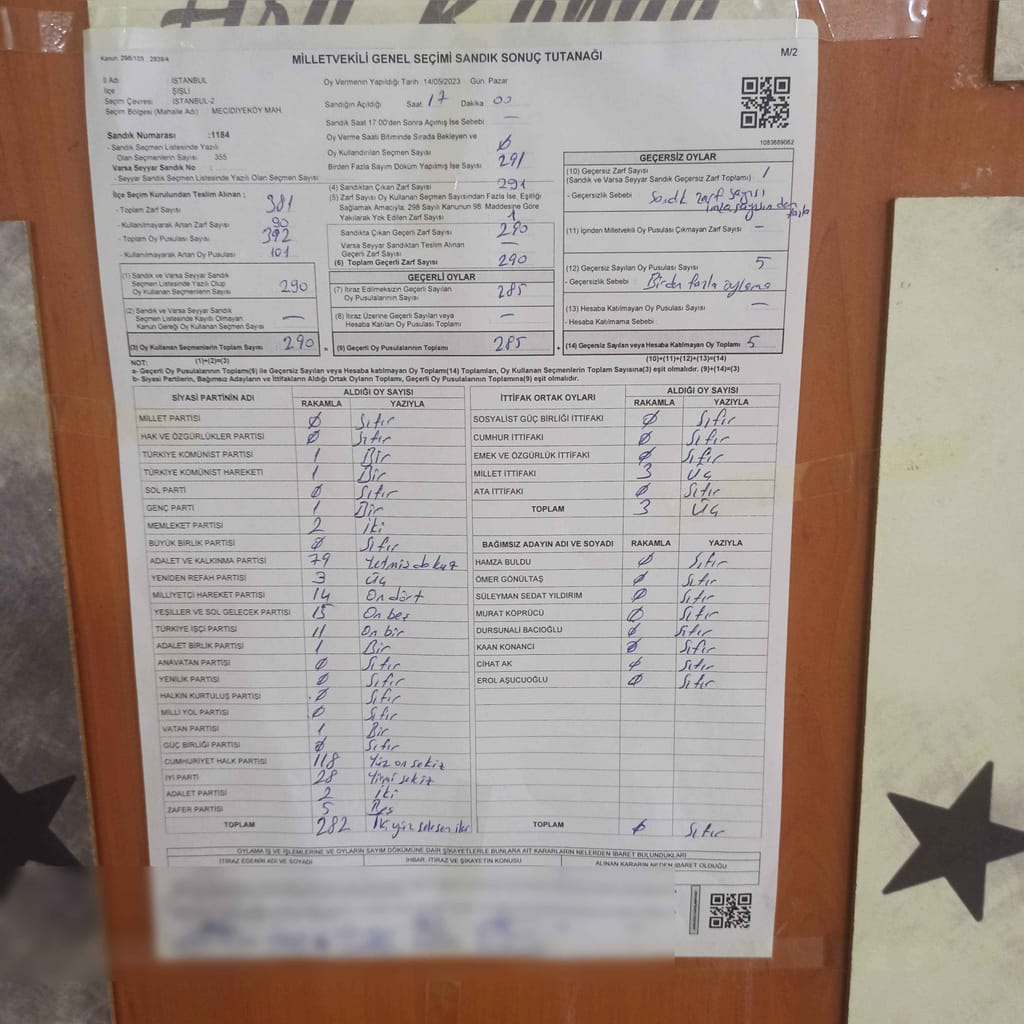 MİLLETVEKİLİ GENEL SEÇİMİ SANDIK SONUÇ TUTANAĞI
M/2
Kanun: 298/105 : 2839/4
İl Adı İSTANBUL
İlçe ŞİŞLİ
Seçim Çevresi İSTANBUL-2
Seçim Bölgesi (Mahalle Adı) MECİDİYEKÖY MAH.
Sandık Numarası :1184
- Sandık Seçmen Listesinde Yazılı
Olan Seçmenlerin Sayısı 355
Varsa Seyyar Sandık No
- Seyyar Sandık Seçmen Listesinde Yazılı Olan Seçmen Sayısı:
İlçe Seçim Kurulundan Teslim Alınan ;
- Toplam Zarf Sayısı 381
- Kullanılmayarak Artan Zarf Sayısı 90
- Toplam Oy Pusulası Sayısı 392
- Kullanılmayarak Artan Oy Pusulası 101
(1) Sandık ve Varsa Seyyar Sandık
Seçmen Listesinde Yazılı Olup
Oy Kullanan Seçmenlerin Sayısı 290
(2) Sandık ve Varsa Seyyar Sandık
Seçmen Listesinde Kayıtlı Olmayan
Kanun Gereği Oy Kullanan Seçmen Sayısı —
(3) Oy Kullanan Seçmenlerin Toplam Sayısı 290
(1)+(2)=(3)
Oy Vermenin Yapıldığı Tarih :14/05/2023 Gün Pazar
Sandığın Açıldığı Saat 17 Dakika 00
Sandık Saat 17:00'den Sonra Açılmış İse Sebebi : —
Oy Verme Saati Bitiminde Sırada Bekleyen ve
Oy Kullandırılan Seçmen Sayısı Ø
Birden Fazla Sayım Döküm Yapılmış İse Sayısı 291
(4) Sandıktan Çıkan Zarf Sayısı 291
(5) Zarf Sayısı Oy Kullanan Seçmen Sayısından Fazla İse, Eşitliği
Sağlamak Amacıyla, 298 Sayılı Kanunun 98. Maddesine Göre
Yakılarak Yok Edilen Zarf Sayısı 1
Sandıkta Çıkan Geçerli Zarf Sayısı 290
Varsa Seyyar Sandıktan Teslim Alınan
Geçerli Zarf Sayısı —
(6) Toplam Geçerli Zarf Sayısı 290
GEÇERLİ OYLAR
(7) İtiraz Edilmeksizin Geçerli Sayılan
Oy Pusulalarının Sayısı 285
(8) İtiraz Üzerine Geçerli Sayılan veya
Hesaba Katılan Oy Pusulası Toplamı —
(9) Geçerli Oy Pusulalarının Toplamı 285
1083689062
GEÇERSİZ OYLAR
(10) Geçersiz Zarf Sayısı 1
(Sandık ve Varsa Seyyar Sandık Geçersiz Zarf Toplamı)
- Geçersizlik Sebebi Sandık zarf sayısı
imza sayısından fazla
(11) İçinden Milletvekili Oy Pusulası Çıkmayan Zarf Sayısı —
(12) Geçersiz Sayılan Oy Pusulası Sayısı 5
- Geçersizlik Sebebi : Birden fazla oylama
(13) Hesaba Katılmayan Oy Pusulası Sayısı —
- Hesaba Katılmama Sebebi
(14) Geçersiz Sayılan veya Hesaba Katılmayan Oy Toplamı 5
(10)+(11)+(12)+(13)=(14)
NOT:
a- Geçerli Oy Pusulalarının Toplamı(9) ile Geçersiz Sayılan veya Hesaba katılmayan Oy Toplamı(14) Toplamları, Oy Kullanan Seçmenlerin Toplam Sayısına(3) eşit olmalıdır. (9)+(14)=(3)
b- Siyasi Partilerin, Bağımsız Adayların ve İttifakların Aldığı Ortak Oyların Toplamı, Geçerli Oy Pusulalarının Toplamına(9) eşit olmalıdır.
SİYASİ PARTİNİN ADI ALDIĞI OY SAYISI
RAKAMLA YAZIYLA
MİLLET PARTİSİ Ø Sıfır
HAK VE ÖZGÜRLÜKLER PARTİSİ Ø Sıfır
TÜRKİYE KOMÜNİST PARTİSİ 1 Bir
TÜRKİYE KOMÜNİST HAREKETİ 1 Bir
SOL PARTİ Ø Sıfır
GENÇ PARTİ 1 Bir
MEMLEKET PARTİSİ 2 İki
BÜYÜK BİRLİK PARTİSİ Ø Sıfır
ADALET VE KALKINMA PARTİSİ 79 Yetmiş dokuz
YENİDEN REFAH PARTİSİ 3 Üç
MİLLİYETÇİ HAREKET PARTİSİ 14 On dört
YEŞİLLER VE SOL GELECEK PARTİSİ 15 On beş
TÜRKİYE İŞÇİ PARTİSİ 11 On bir
ADALET BİRLİK PARTİSİ 1 Bir
ANAVATAN PARTİSİ Ø Sıfır
YENİLİK PARTİSİ Ø Sıfır
HALKIN KURTULUŞ PARTİSİ Ø Sıfır
MİLLİ YOL PARTİSİ Ø Sıfır
VATAN PARTİSİ 1 Bir
GÜÇ BİRLİĞİ PARTİSİ Ø Sıfır
CUMHURİYET HALK PARTİSİ 118 Yüz on sekiz
İYİ PARTİ 28 Yirmi sekiz
ADALET PARTİSİ 2 İki
ZAFER PARTİSİ 5 Beş
TOPLAM 282 İki yüz seksen iki
İTTİFAK ORTAK OYLARI ALDIĞI OY SAYISI
RAKAMLA YAZIYLA
SOSYALİST GÜÇ BİRLİĞİ İTTİFAKI Ø Sıfır
CUMHUR İTTİFAKI Ø Sıfır
EMEK VE ÖZGÜRLÜK İTTİFAKI Ø Sıfır
MİLLET İTTİFAKI 3 Üç
ATA İTTİFAKI Ø Sıfır
TOPLAM 3 Üç
BAĞIMSIZ ADAYIN ADI VE SOYADI RAKAMLA YAZIYLA
HAMZA BULDU Ø Sıfır
ÖMER GÖNÜLTAŞ Ø Sıfır
SÜLEYMAN SEDAT YILDIRIM Ø Sıfır
MURAT KÖPRÜCÜ Ø Sıfır
DURSUNALİ BACIOĞLU Ø Sıfır
KAAN KONANCİ Ø Sıfır
CİHAT AK Ø Sıfır
EROL AŞUCUOĞLU Ø Sıfır
TOPLAM Ø Sıfır
OYLAMA İŞ VE İŞLEMLERİNE VE OYLARIN SAYIM DÖKÜMÜNE DAİR ŞİKAYETLERLE BUNLARA AİT KARARLARIN NELERDEN İBARET BULUNDUKLARI
İTİRAZ EDENİN ADI VE SOYADI İHBAR, İTİRAZ VE ŞİKAYETİN KONUSU ALINAN KARARIN NEDEN İBARET OLDUĞU